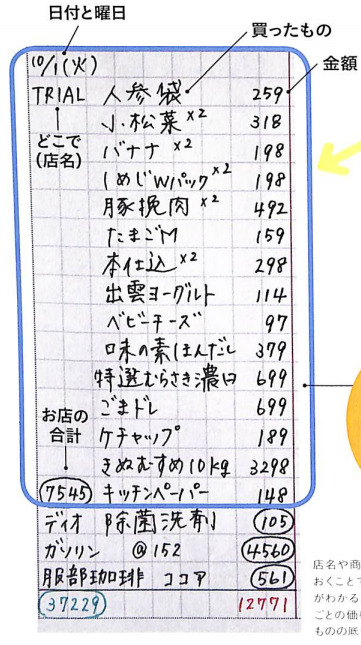 日付と曜日
買ったもの
金額
10/1(火)
TRIAL 人参袋 259
小松菜 ×2 318
どこで
(店名)
バナナ ×2 198
しめじWパック ×2 198
豚挽肉 ×2 492
たまごM 159
本仕込 ×2 298
出雲ヨーグルト 114
ベビーチーズ 97
味の素ほんだし 379
特選むらさき濃口 699
お店の
合計
ごまドレ 699
ケチャップ 189
きぬむすめ10kg 3298
7545 キッチンペーパー 148
ディオ 除菌洗剤 105
ガソリン @152 4560
服部珈琲 ココア 561
37229 12771
店名や商
おくことで
がわかる
ごとの価
ものの底